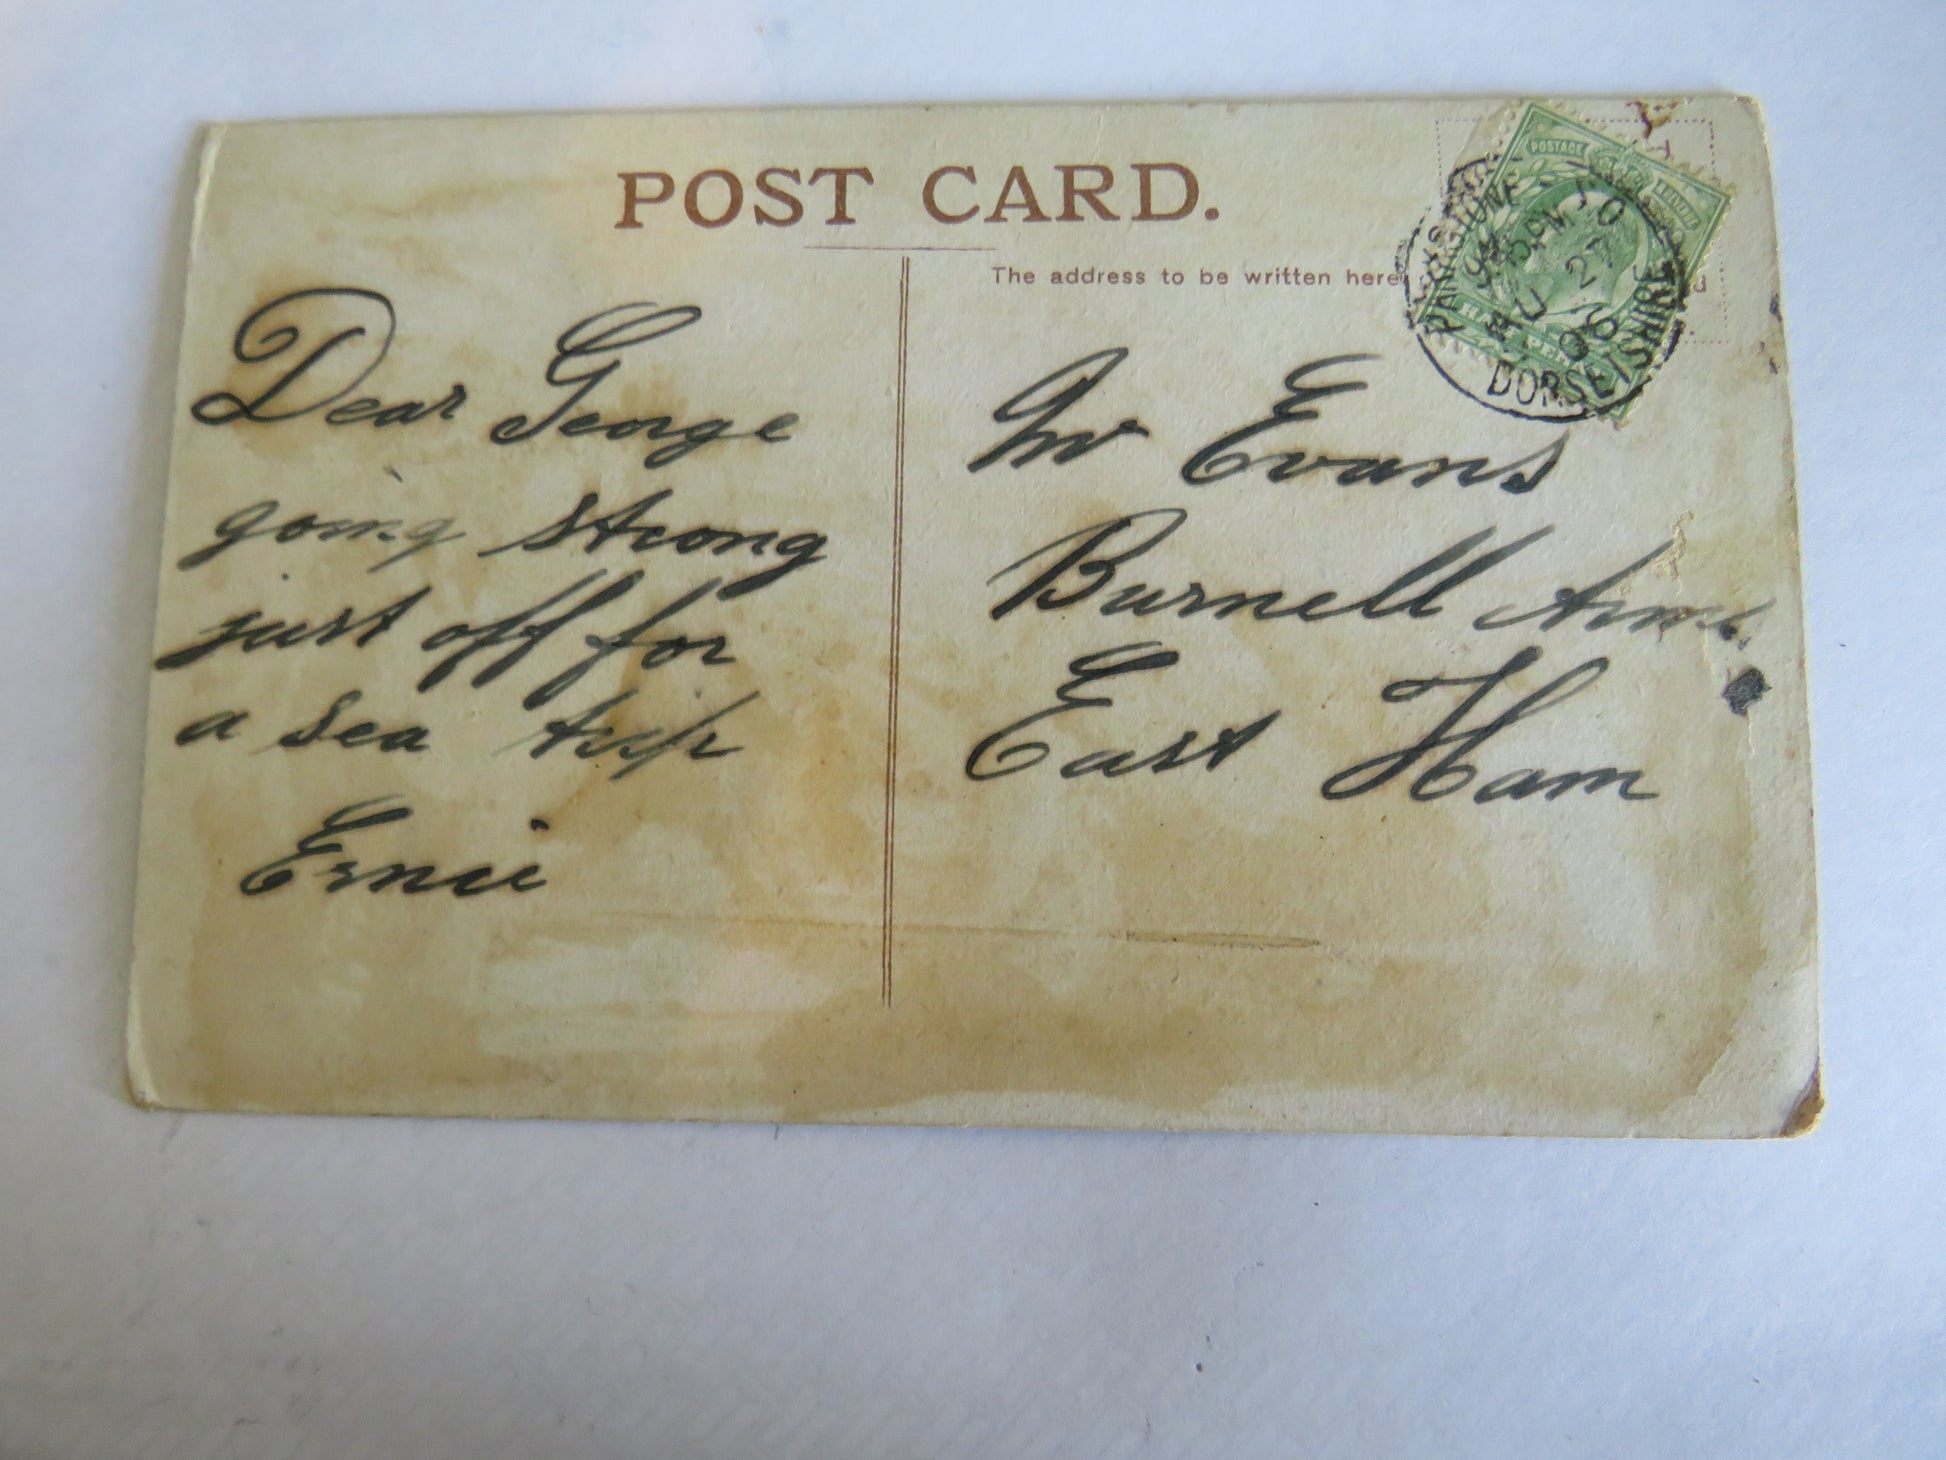 POST CARD.
The address to be written here
Dear George
going strong
just off for
a sea trip
Ernie
Mr Evans
Burnell Arms
East Ham
POSTAGE
REVENUE
HALFPENNY
PARKSTONE
AU 27
08
DORSETSHIRE